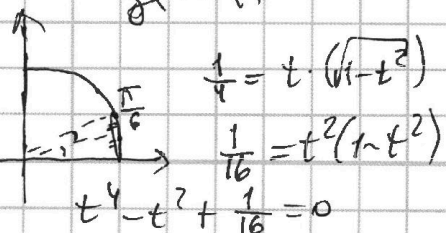 π/6
1/4 = t · (√1-t²)
1/16 = t²(1-t²)
t⁴ - t² + 1/16 = 0